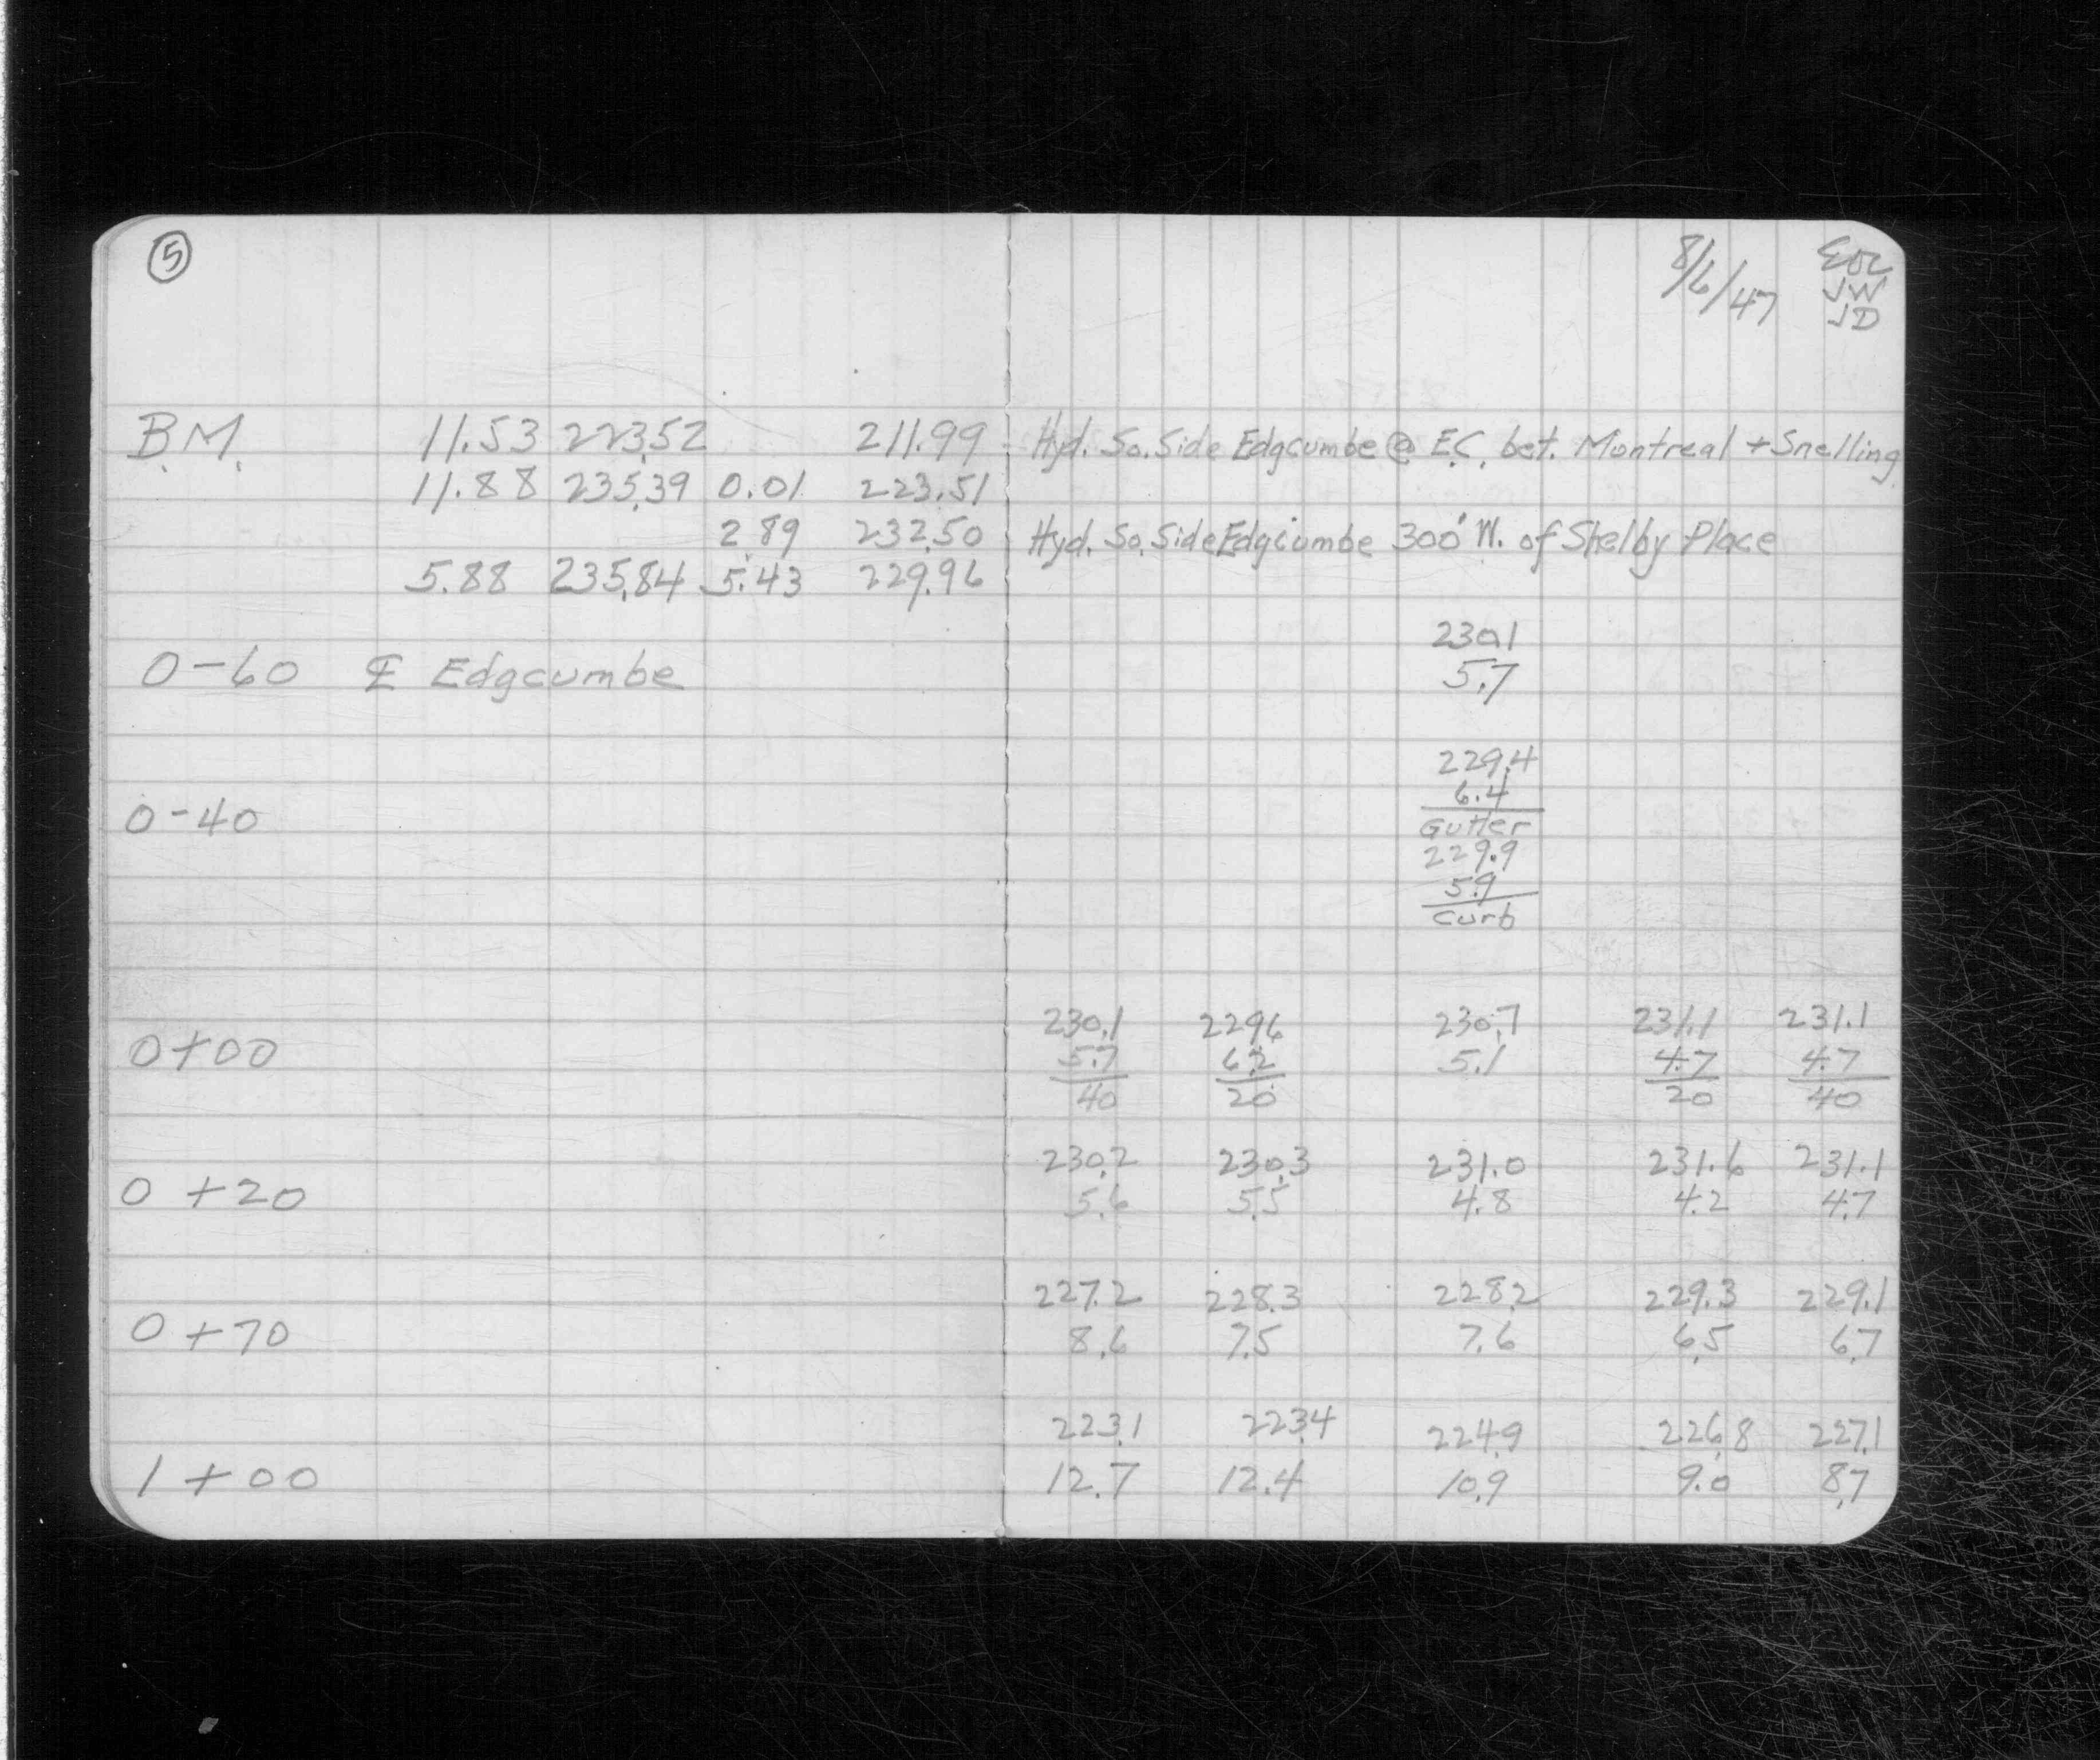 5
8/6/47 EOC
JW
JD
B.M. 11.53 223.52 211.99 Hyd. So. Side Edgcumbe @ E.C. bet. Montreal + Snelling
11.88 235.39 0.01 223.51
2.89 232.50 Hyd. So. Side Edgcumbe 300' W. of Shelby Place
5.88 235.84 5.43 229.96
230.1
0-60 ℄ Edgcumbe 5.7
229.4
6.4
0-40 Gutter
229.9
5.9
Curb
230.1 229.6 230.7 231.1 231.1
0+00 5.7 6.2 5.1 4.7 4.7
40 20 20 40
230.2 230.3 231.0 231.6 231.1
0+20 5.6 5.5 4.8 4.2 4.7
227.2 228.3 228.2 229.3 229.1
0+70 8.6 7.5 7.6 6.5 6.7
223.1 223.4 224.9 226.8 227.1
1+00 12.7 12.4 10.9 9.0 8.7